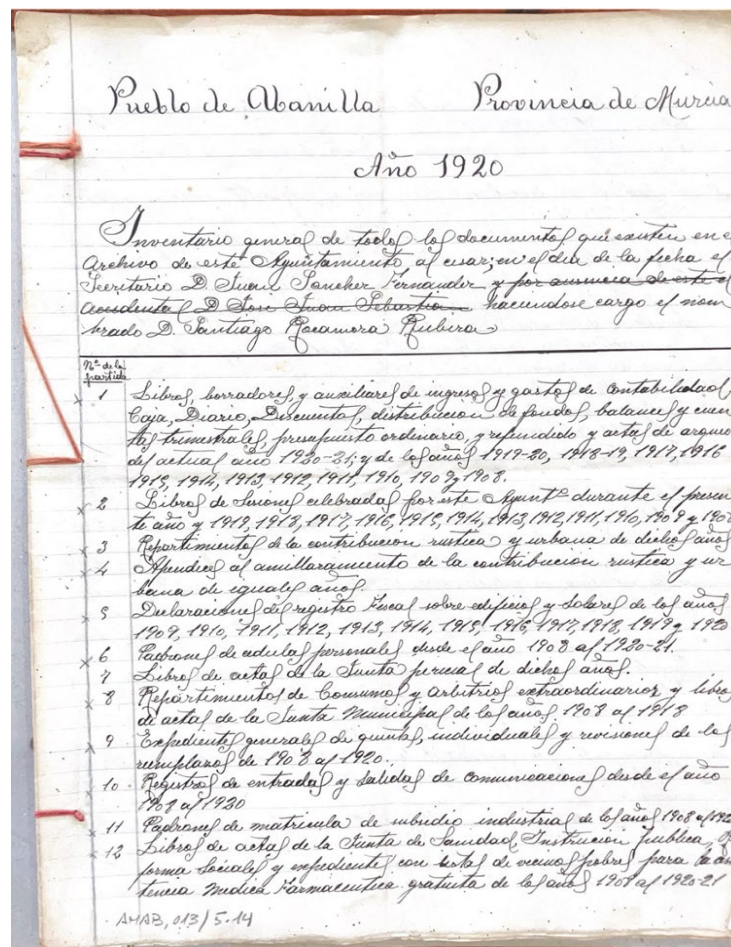 Pueblo de Abanilla Provincia de Murcia
Año 1920
Inventario general de todos los documentos que existen en e
Archivo de este Ayuntamiento al cesar; en el dia de la fecha el
Secritario D. Juan Sanchez Fernandez y por ausencia de este el
accidental D. Jose Juan Sebastia haciendose cargo el nom
brado D. Santiago Rocamora Rubira
Nº de la
partida
1 Libros, borradores, y auxiliares de ingresos y gastos de Contabilidad,
Caja, Diario, Descuentos, distribucion de fondos, balances y cuen
tas trimestrales, presupuesto ordinario, y refundido y actas de arqueo
del actual año 1920-21; y de los años 1919-20, 1918-19, 1917, 1916
1915, 1914, 1913, 1912, 1911, 1910, 1909 y 1908.
2 Libros de Sesiones celebradas por este Ayuntº durante el presen
te año y 1919, 1918, 1917, 1916, 1915, 1914, 1913, 1912, 1911, 1910, 1909 y 1908
3 Repartimientos de la contribucion rustica y urbana de dichos años
4 Apendices al amillaramiento de la contribucion rustica y ur
bana de iguales años.
5 Declaraciones del registro Fiscal sobre edificios y Solares de los años
1909, 1910, 1911, 1912, 1913, 1914, 1915, 1916, 1917, 1918, 1919 y 1920
6 Padrones de cedulas personales desde el año 1908 al 1920-21.
7 Libros de actas de la Junta pericial de dichos años.
8 Repartimientos de Consumos y arbitrios extraordinarios y libros
de actas de la Junta Municipal de los años 1908 al 1918
9 Expedientes generales de quintas, individuales y revisiones de los
reemplazos de 1908 al 1920.
10 Registros de entradas y Salidas de Comunicaciones desde el año
1908 al 1920
11 Padrones de matricula de subsidio industrial de los años 1908 al 192
12 Libros de actas de la Junta de Sanidad, Instrucion publica,
forma Sociales y expedientes con listas de vecinos pobres para la asis
tencia Medico Farmaceutica gratuita de los años 1908 al 1920-21
AMAB, 013/5.14